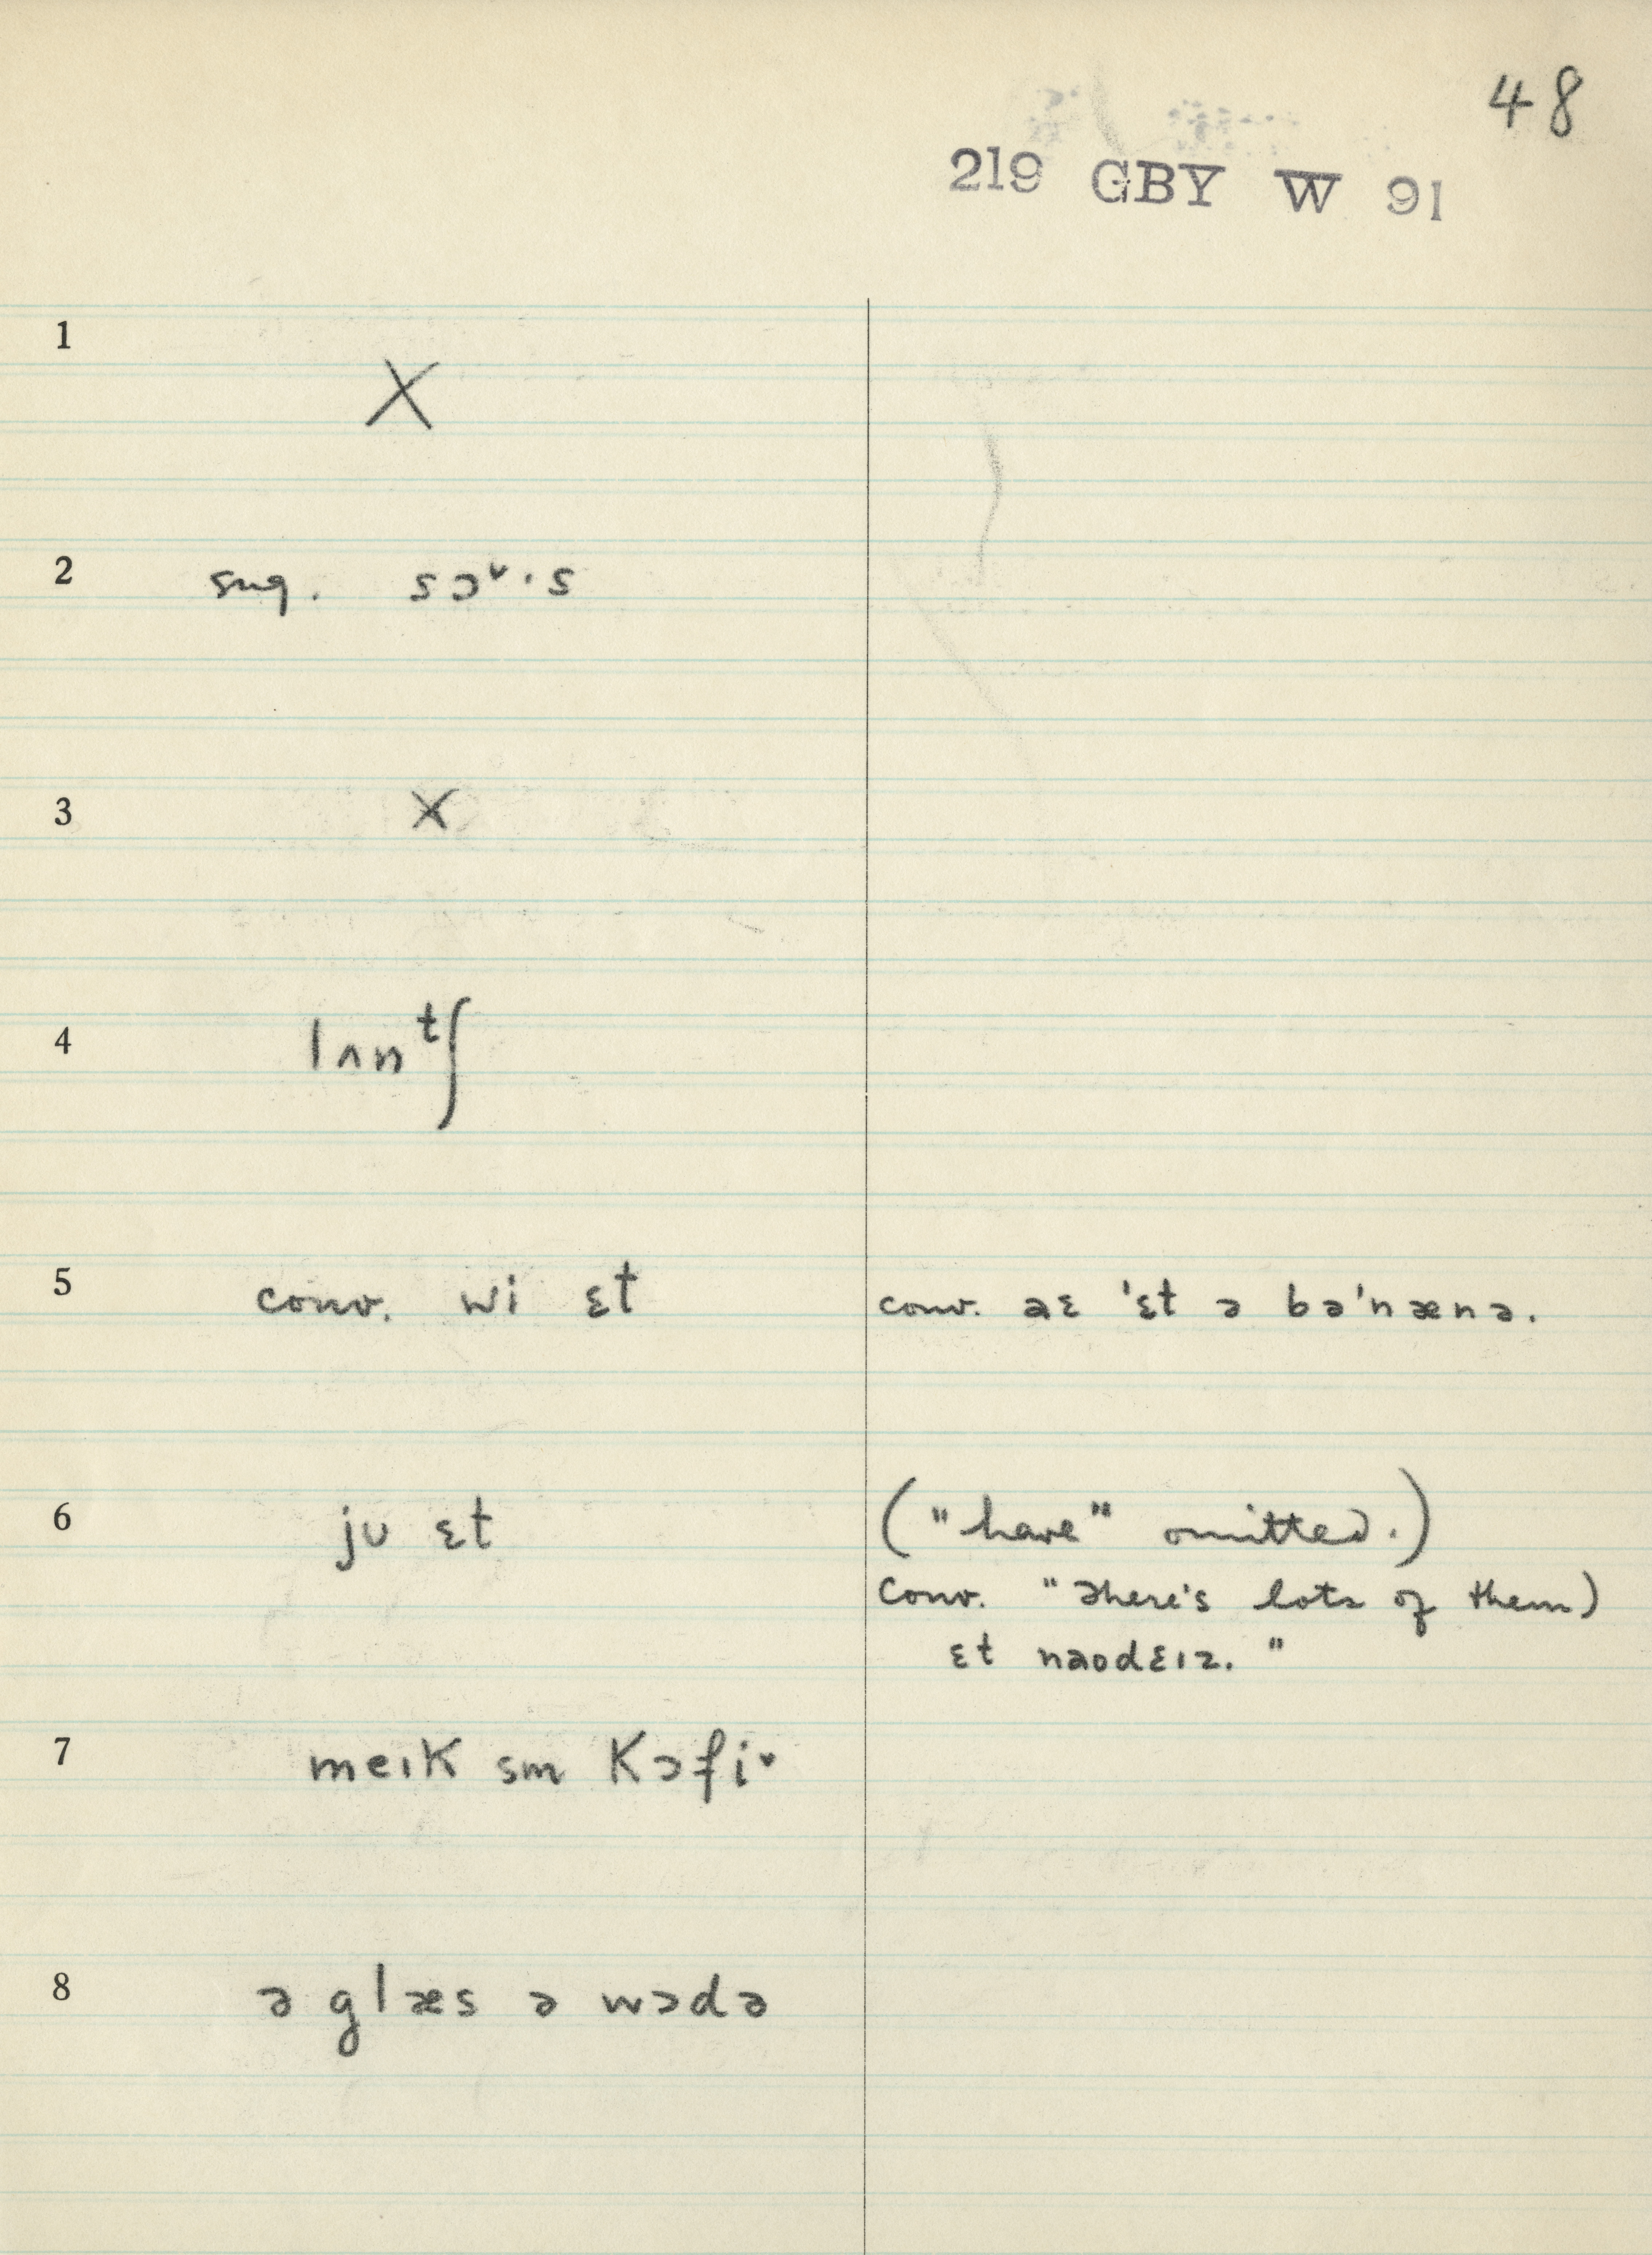 48
219 GBY W 91
1
X
2 sug. sɔ˅·s
3 X
4 lʌnᵗʃ
5 conv. wi ɛt conv. aɛ 'ɛt ə bə'nænə.
6 ju ɛt ("have" omitted.)
conv. "There's lots of them)
ɛt naodɛɪz."
7 meɪk sm kɔfi˅
8 ə glæs ə wɔdə